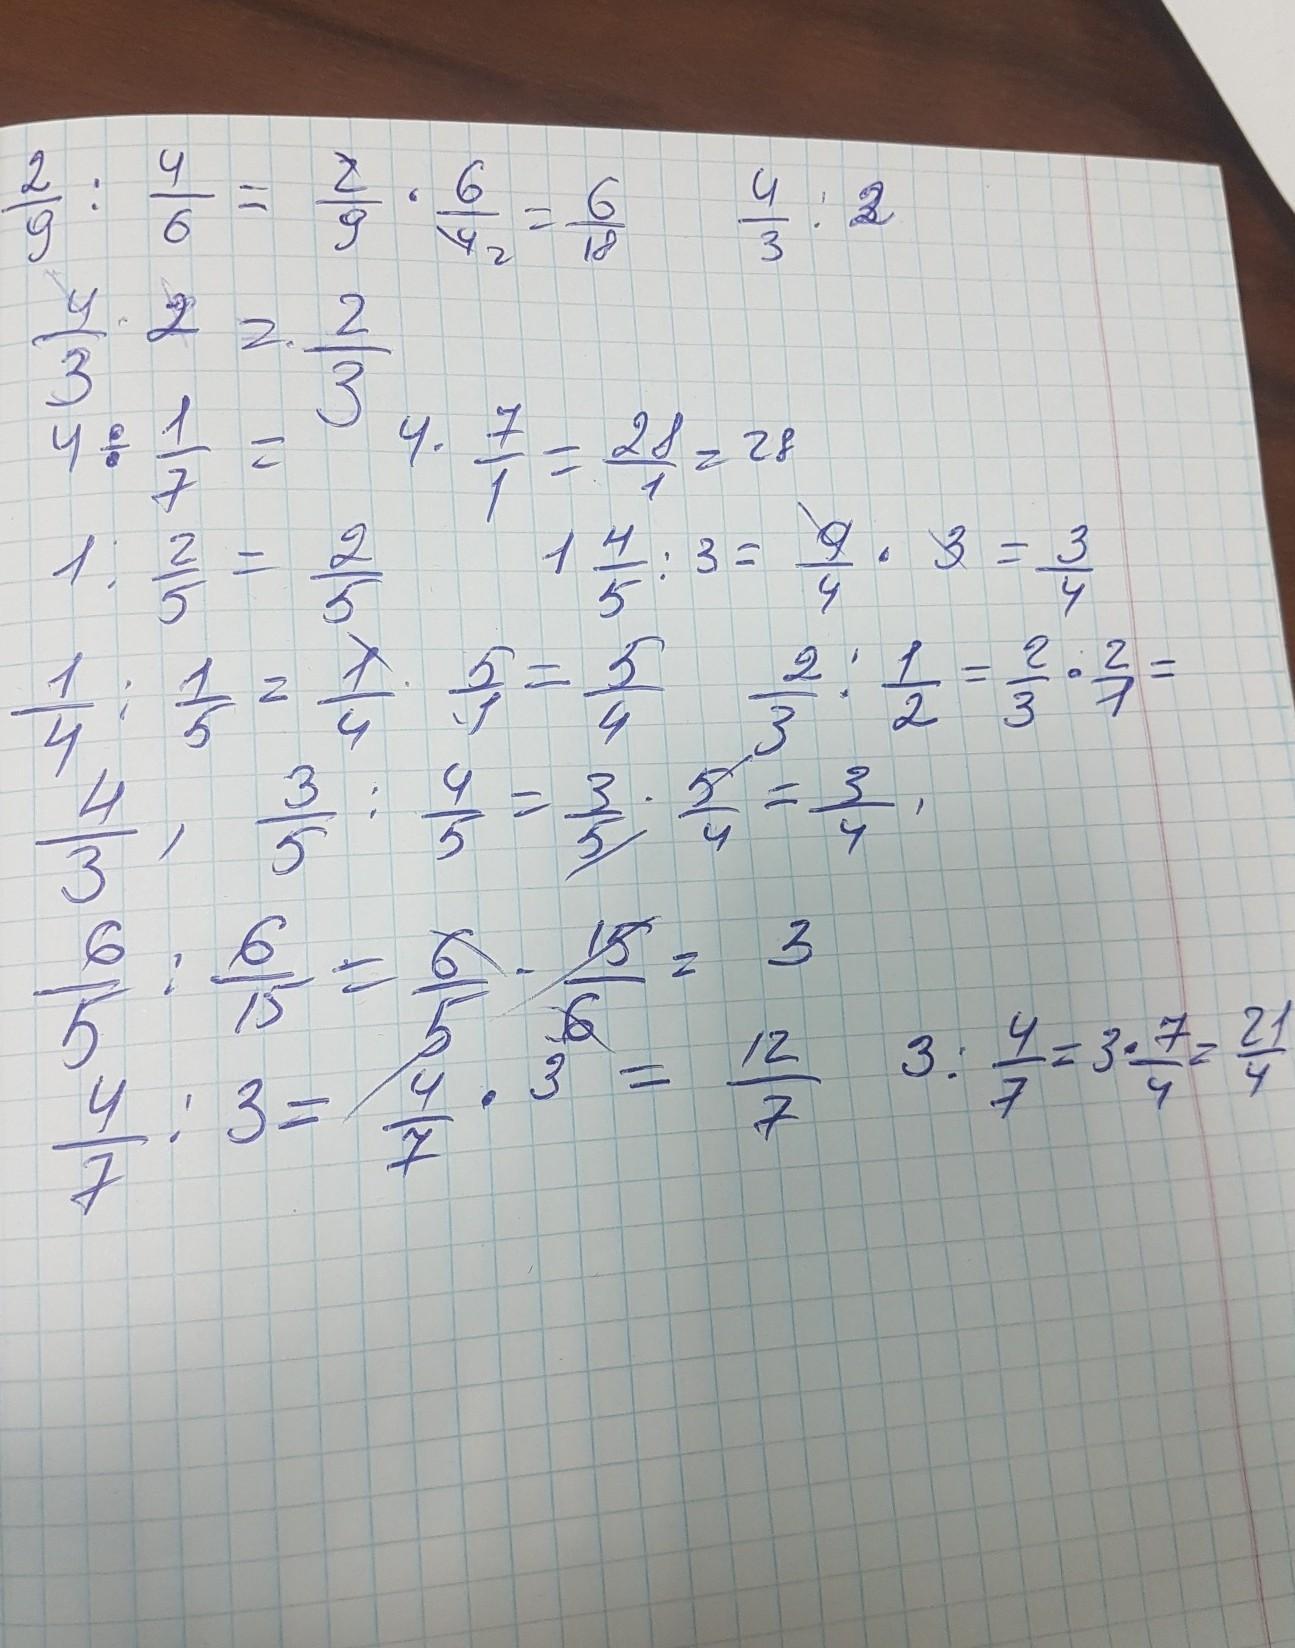 2/9 : 4/6 = 2/9 · 6/4 2 = 6/18 4/3 : 2
4/3 · 2 = 2/3
4 ÷ 1/7 = 4 · 7/1 = 28/1 = 28
1 : 2/5 = 2/5 1 4/5 : 3 = 9/4 · 3 = 3/4
1/4 : 1/5 = 1/4 · 5/1 = 5/4 2/3 : 1/2 = 2/3 · 2/1 =
4/3 , 3/5 : 4/5 = 3/5 · 5/4 = 3/4 ,
6/5 : 6/15 = 6/5 · 15/6 = 3
4/7 : 3 = 4/7 · 3 = 12/7 3 : 4/7 = 3 · 7/4 = 21/4